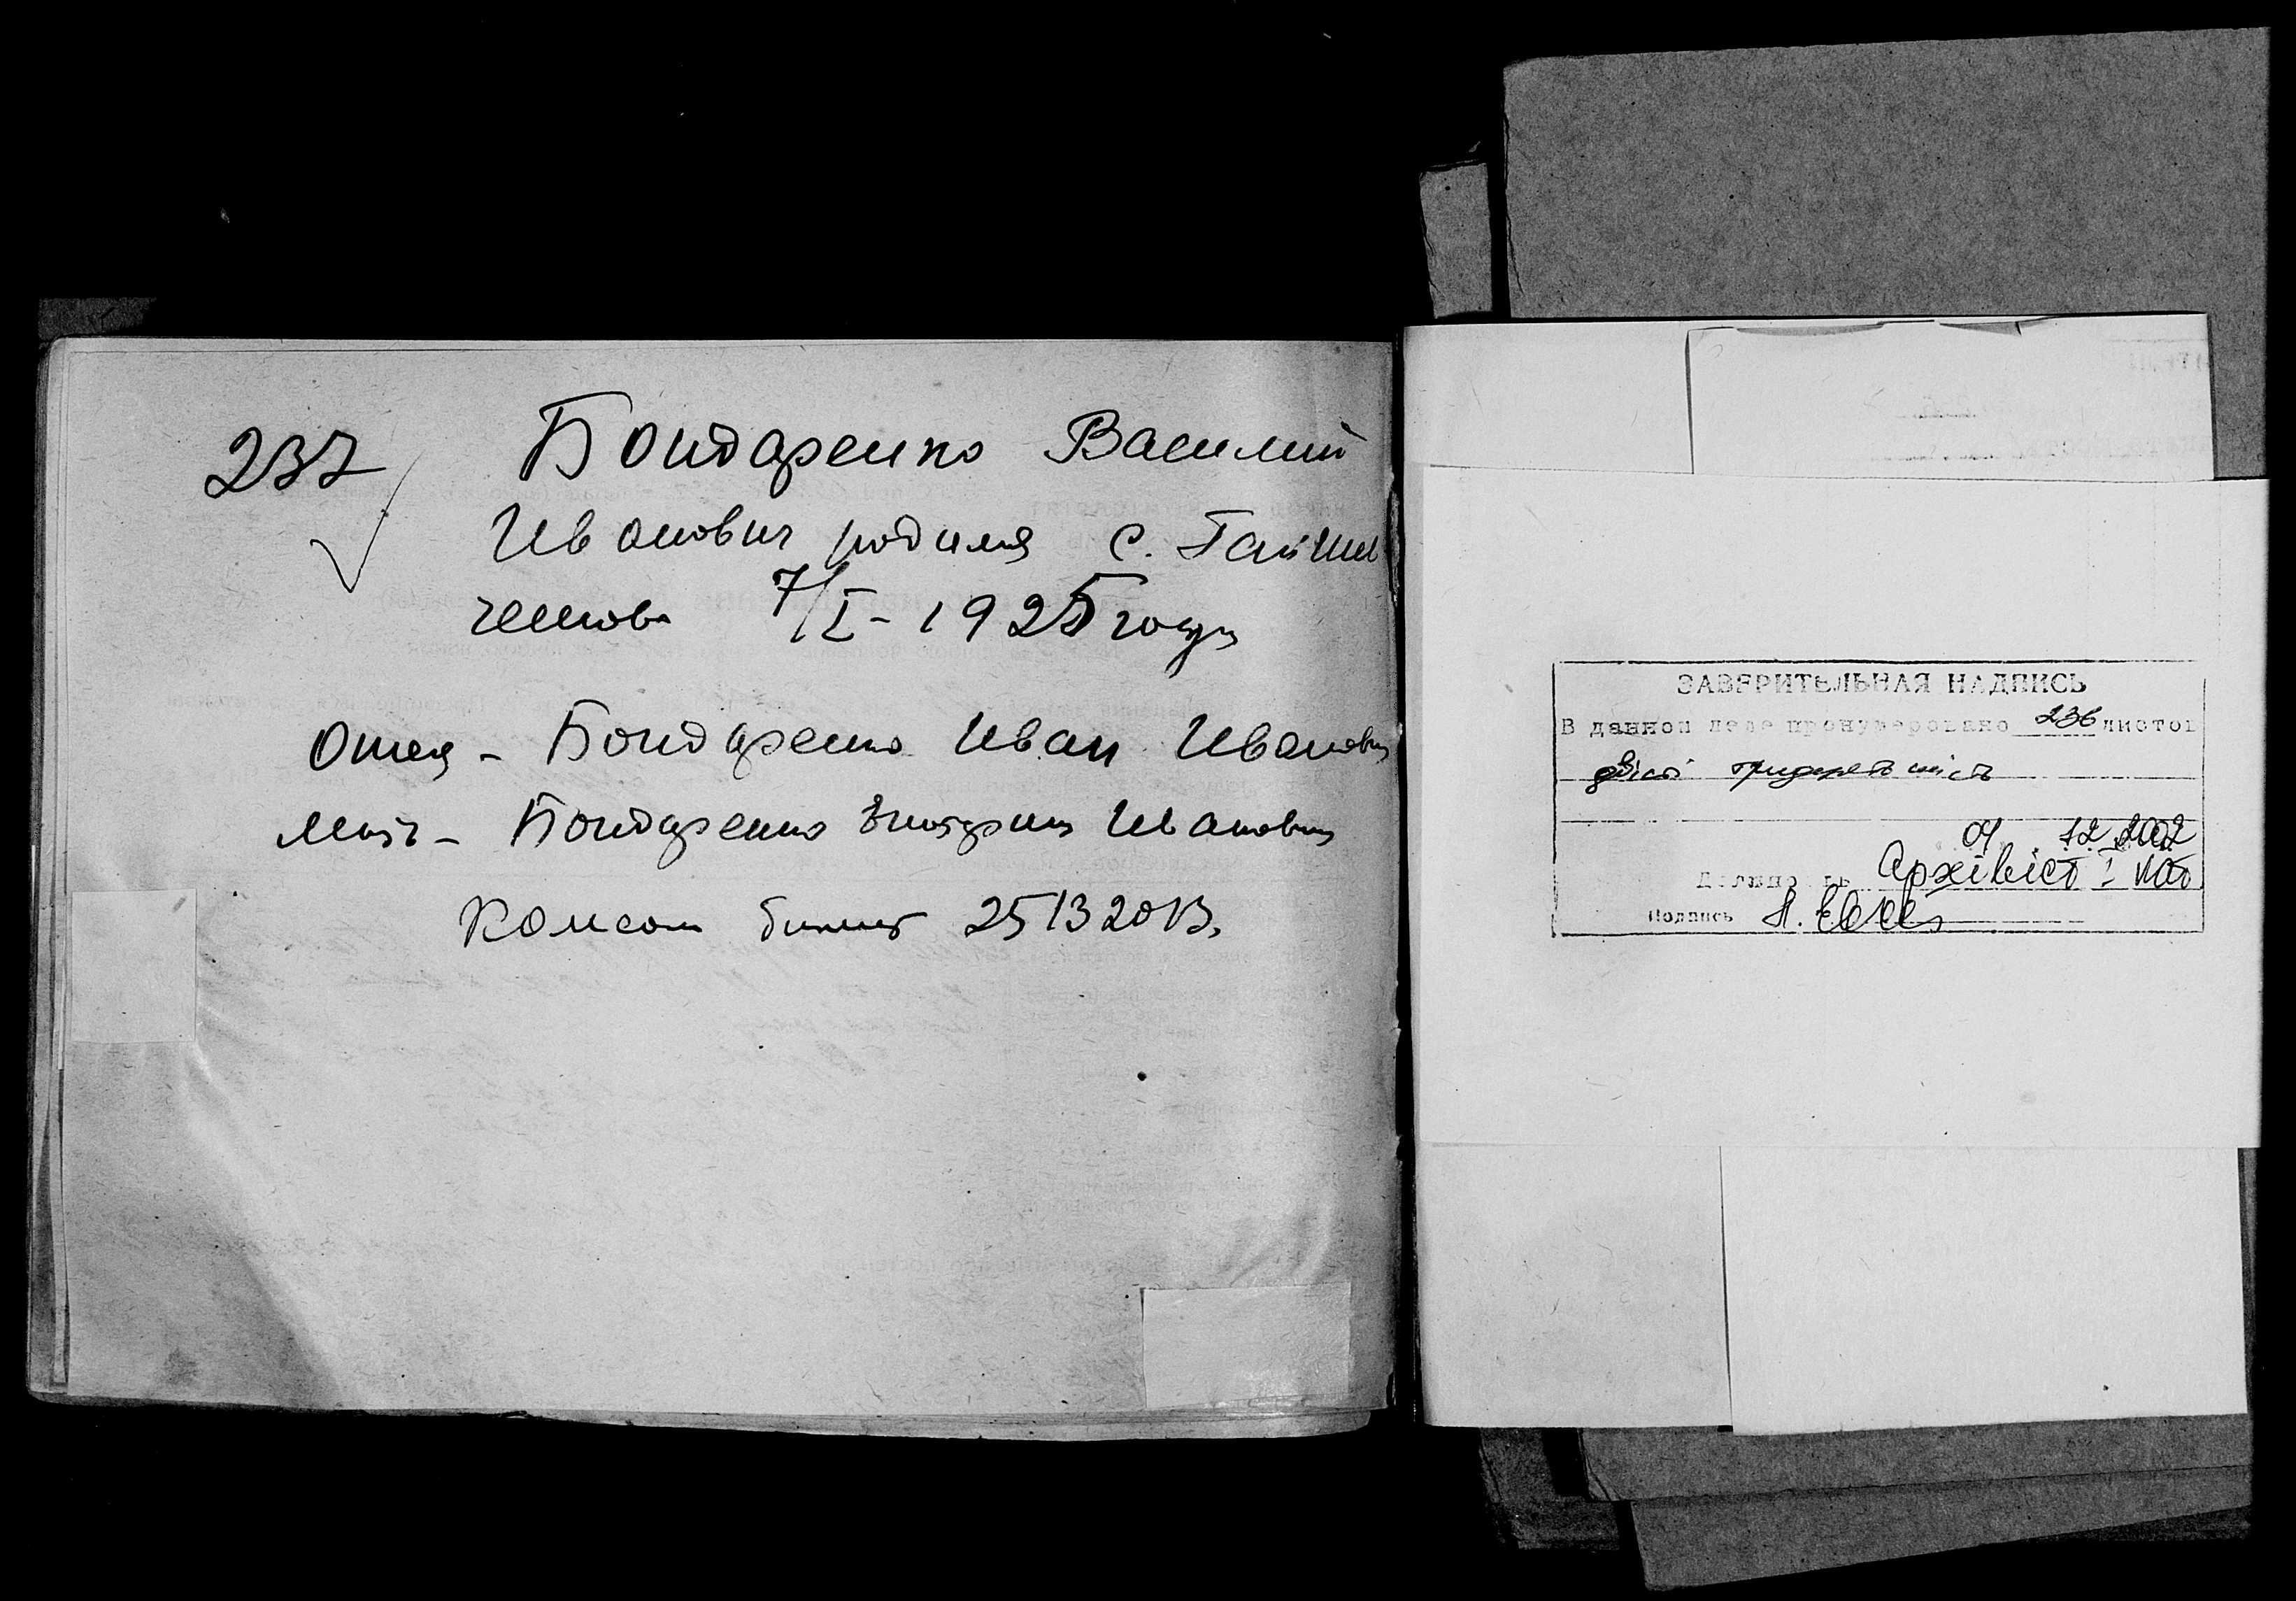 237
Бондаренко Василий
Иванович родился с. Гайши
7/I - 1925 года
Отец - Бондаренко Иван Иванович
Мать - Бондаренко Ивановна
Комсом билет 2513 20 В.
ЗАВЕРИТЕЛЬНАЯ НАДПИСЬ
В данном деле пронумеровано 236 листов
двісті тридцять шість
04 12 2002
Должность Архівіст I кат
Подпись